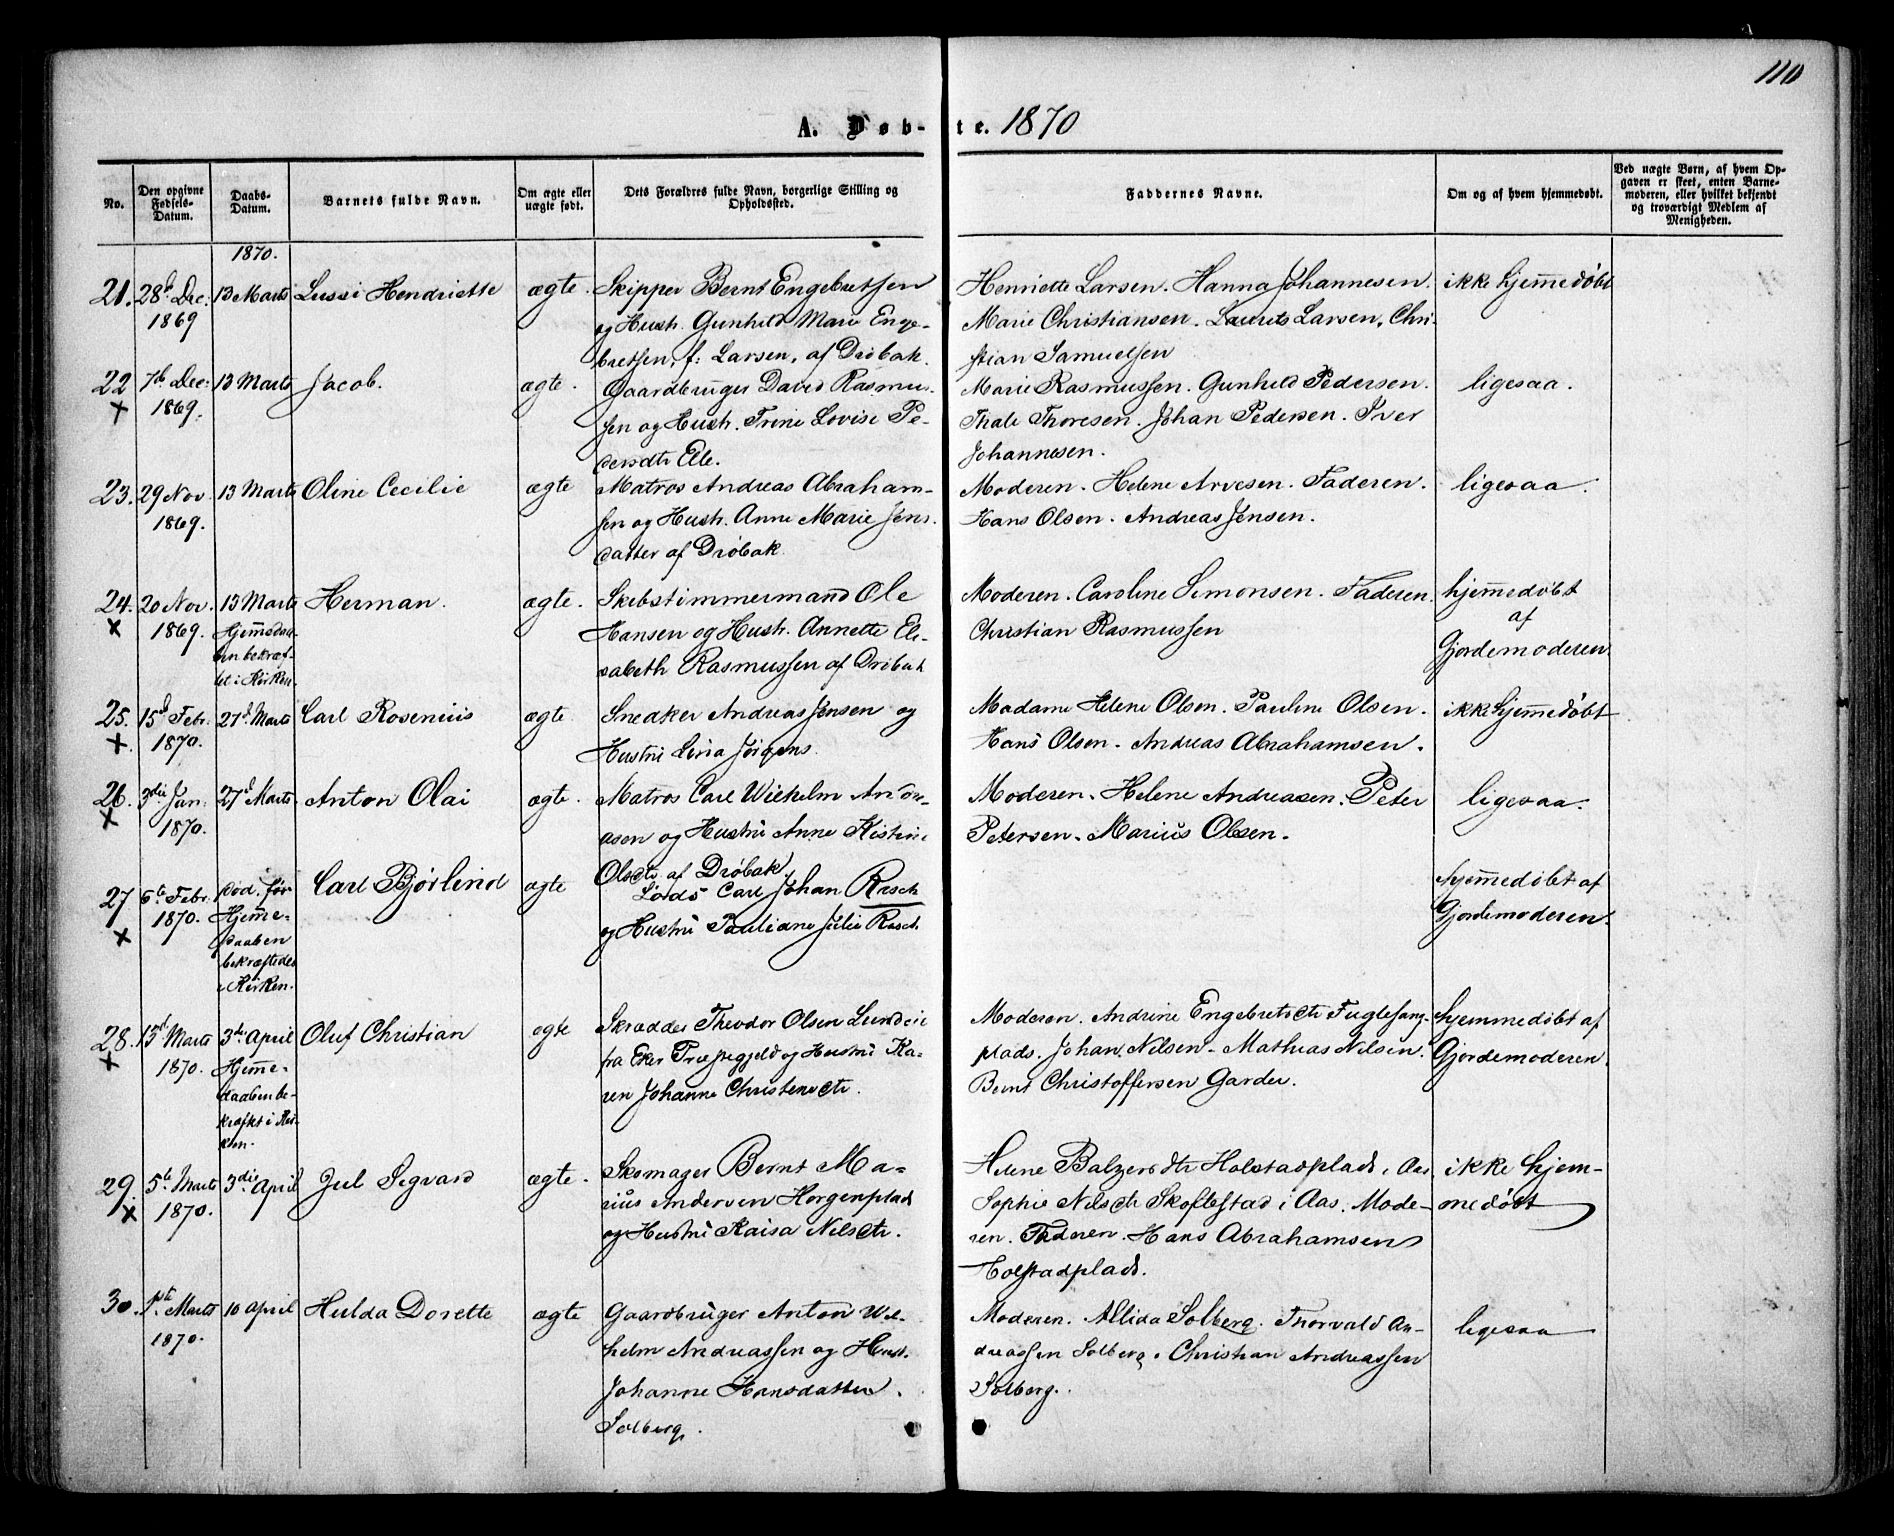 110
A. Døb-te. 1870
No.
Den opgivne Fødsels-Datum.
Daabs-Datum.
Barnets fulde Navn.
Om ægte eller uægte født.
Dets Forældres fulde Navn, borgerlige Stilling og Opholdssted.
Faddernes Navne.
Om og af hvem hjemmedøbt.
Ved uægte Børn, af hvem Opgaven er skeet, enten Barnemoderen, eller hvilket bekjendt og troværdigt Medlem af Menigheden.
1870.
21. 28de Dec: 13 Marts Lussi Hendriette ægte. Skipper Bernt Engebretsen Henriette Larsen. Hanna Johannesen. ikke hjemmedøbt
1869 og Hustr. Gunhild Marie Enge- Marie Christiansen. Laurits Larsen, Chri-
bretsen, f: Larsen, af Drøbak. stian Samuelsen
22 7de Dec: 13 Marts Jacob. ægte. Gaardbruger David Rasmus- Marie Rasmussen. Gunhild Pedersen. ligesaa.
x 1869. sen og Hustr. Trine Lovise Pe- Thale Thoresen. Johan Pedersen. Iver
dersdtr Elle. Johannesen.
23. 29 Nov. 13 Marts Oline Cecilie ægte Matros Andreas Abraham- Moderen. Helene Arvesen. Faderen. ligesaa.
1869. sen og Hustr. Anne Marie Jens- Hans Olsen. Andreas Jensen.
datter af Drøbak.
24. 20 Nov. 13 Marts Herman. ægte. Skibstimmermand Ole Moderen. Caroline Simonsen. Faderen. hjemmedøbt
x 1869. Hjemmedaa- Hansen og Hustr. Annette Eli- Christian Rasmussen af
ben bekræf- sabeth Rasmussen af Drøbak Gjordemoderen
tet i Kirken.
25. 15de Febr. 27de Marts Carl Rosenius ægte Snedker Andreas Jensen og Madame Helene Olsen. Pauline Olsen. ikke hjemmedøbt
x 1870. Hustru Lina Jørgens. Hans Olsen. Andreas Abrahamsen.
26. 3die Jan: 27de Marts Anton Olai ægte. Matros Carl Wilhelm Andre- Moderen. Helene Andreasen. Peter ligesaa.
x 1870. asen og Hustru Anne Kistine Petersen. Marius Olsen.
Olsdtr af Drøbak
27 6te Febr. død. før Carl Bjørlind ægte Lods Carl Johan Rasch hjemmedøbt af
x 1870. Hjemme- og Hustru Pauliane Julie Rasch Gjordemoderen.
daaben
bekræftedes
i Kirken.
28. 13de Marts 3de April Oluf Christian ægte Skrædder Theodor Olsen Moderen. Andrine Engebretsdtr Fuglesang- hjemmedøbt af
x 1870. Hjemme- fra Eker Præstegjeld og Hustru Ka- plads. Johan Nilsen. Mathias Nilsen. Gjordemoderen.
daaben be- ren Johanne Christensdtr. Bernt Christoffersen Garder.
kræftet i Kir-
ken.
29. 5te Marts 3die April Jul Segvard ægte. Skomager Bernt Ma- Helene Balzersdtr Holstadplads, Aas. ikke hjem-
x 1870. rius Andersen Horgenplads Sophie Nilsdtr Skoflestad i Aas. Mode- medøbt
og Hustru Kaisa Nilsdtr. ren. Faderen. Hans Abrahamsen
Holstadplads.
30. 1ste Marts 10 April Hulda Dorette ægte Gaardbruger Anton Wil- Moderen. Allida Solberg. Thorvald An- ligesaa
1870. helm Andreassen og Hustr. dreassen Solberg. Christian Andreassen
Johanne Hansdatter. Solberg.
Solberg.